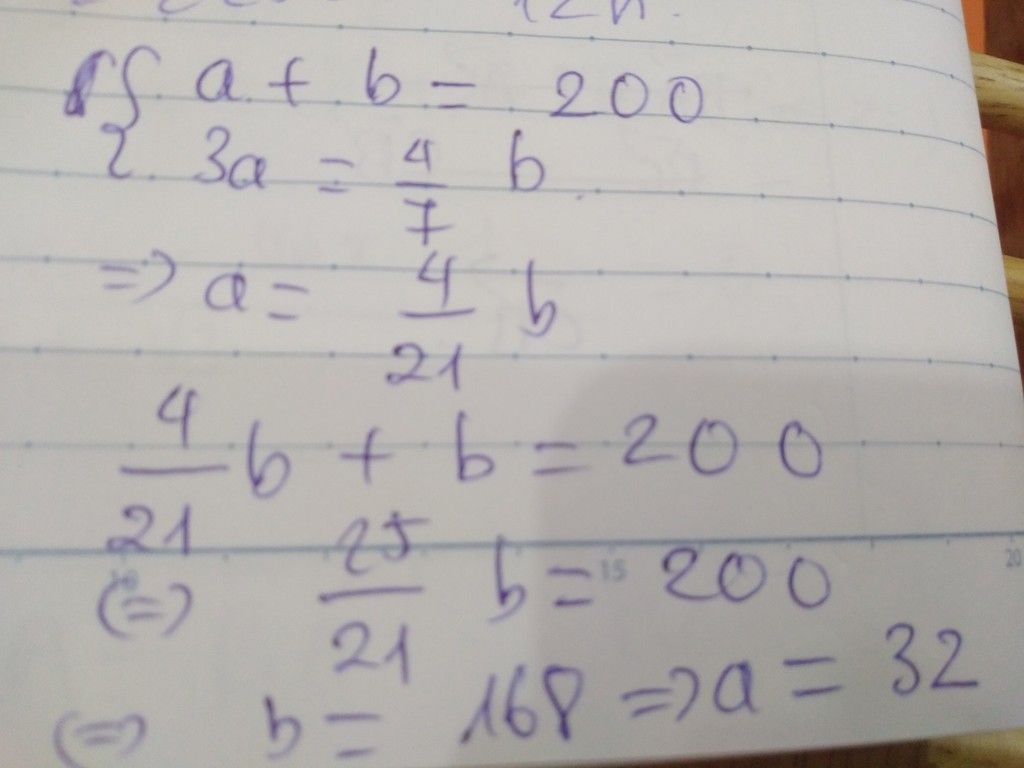 12h.
{ a + b = 200
3a = 4/7 b
=> a = 4/21 b
4/21 b + b = 200
(=) 25/21 b = 200
(=) b = 168 => a = 32
15
20